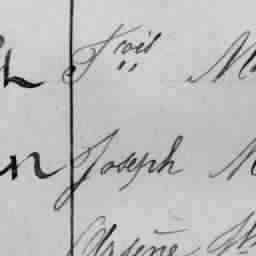 h Frois M
n Joseph M
Arsène